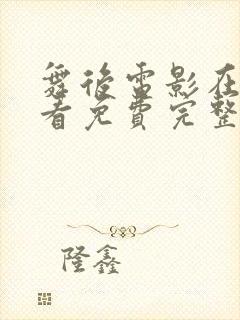 舞後雷影在
看免費完整
隆鑫